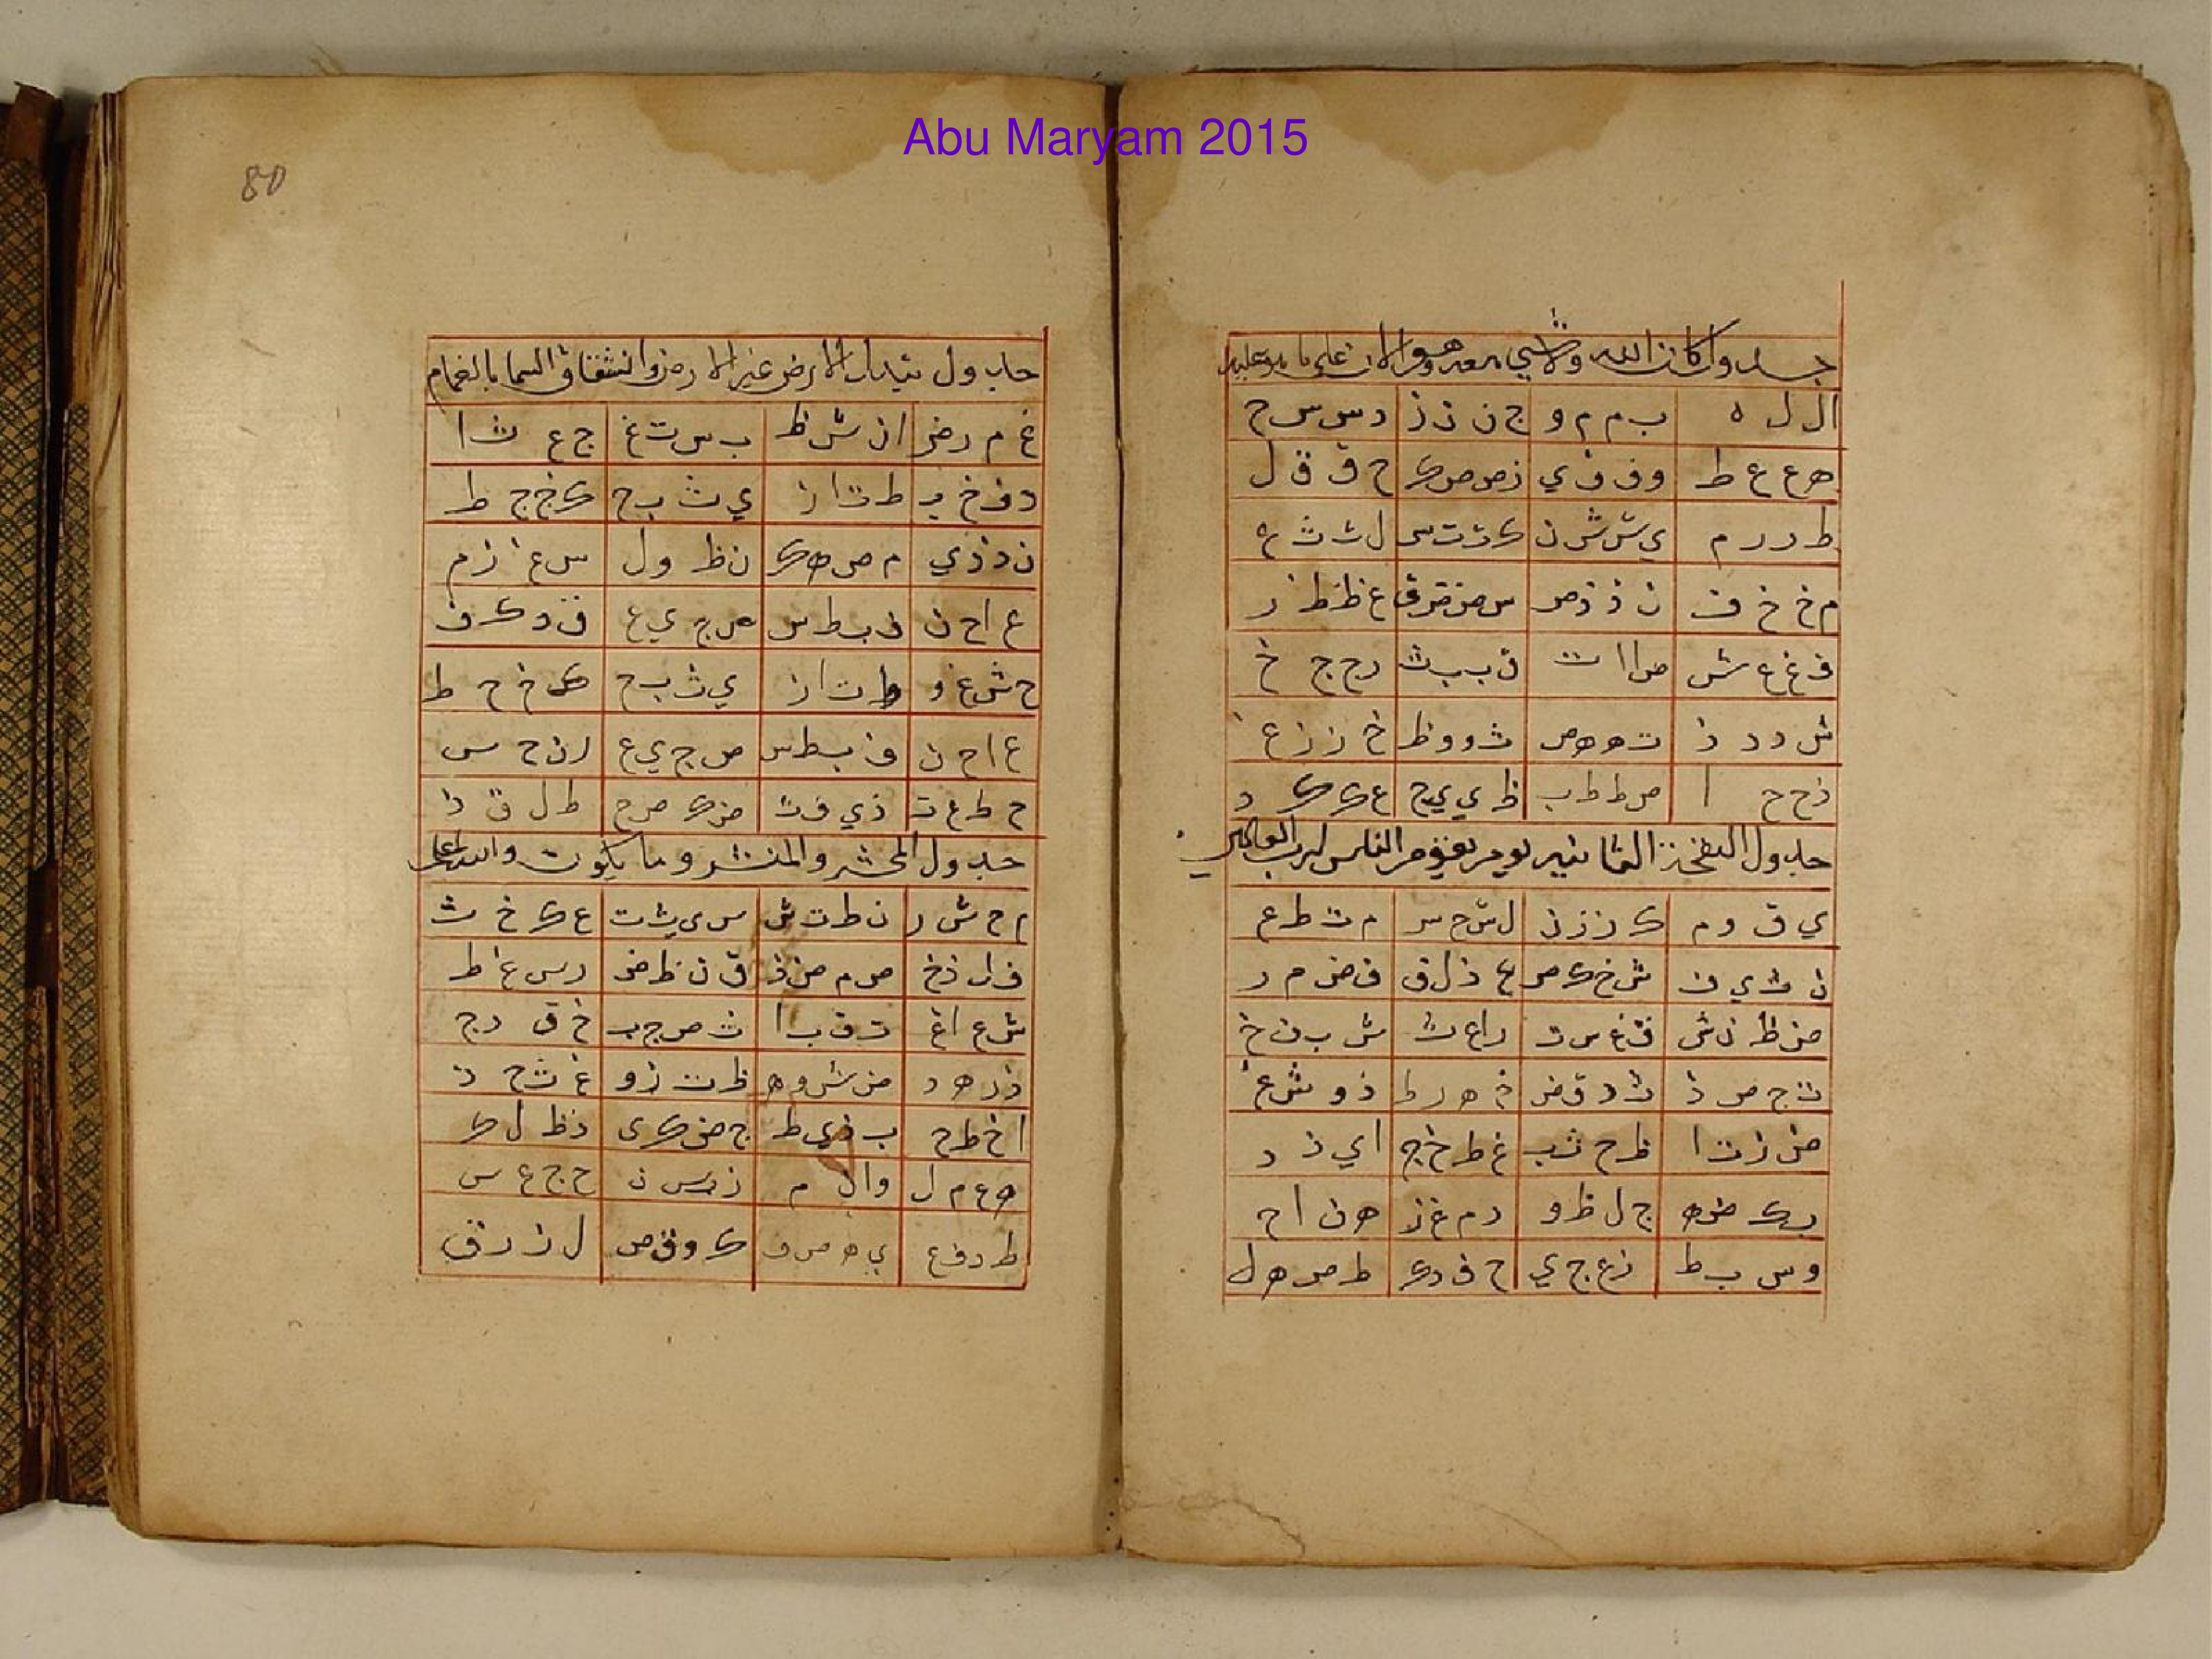 Abu Maryam 2015
جدول كان الله ولا شي معه وهو الان علي ما هو عليه
ا ل ل ه ب م م و ج ن ن ز د س س ح
ه ع ع ط و ف ف ي ز ص ص ك ح ق ق ل
ط ر ر م ي ش ش ن ك ت ت س ل ث ث ع
م خ خ ف ن ذ ذ ص س ض ض ق ع ظ ظ ر
ف غ غ ش ص ا ا ت ق ب ب ث ر ج ج خ
ش د د ذ ت ه ه ض ث و و ظ خ ز ز غ
ذ ح ح ا ض ط ط ب ظ ي ي ج غ ك ك د
جدول النفخة الثانيه يوم يقوم الناس لرب العالمين
ي ق و م ك ر ز ن ل ش ح س م ت ط ع
ن ث ي ف ش خ ك ص ع ذ ل ق ف ض م ر
ض ظ ن ش ق غ س ت ر ا ع ث ش ب ف خ
ت ج ص ذ ث د ق ض خ ه ر ظ ذ و ش غ
ض ز ت ا ظ ح ث ب غ ط خ ج ا ي ذ د
ب ك ض ه ج ل ظ و د م غ ز ه ن ا ح
و س ب ط ز ع ج ي ح ف د ك ط ص ه ل
80
جدول تبديل الارض غير الارض وانشقاق السما بالغمام
غ م ر ض ا ن ش ظ ب س ت غ ج ع ث ا
د ف خ ب ط ت ا ز ي ث ب ح ك خ ج ط
ن ذ د ي م ص ه ك ن ظ و ل س غ ز م
ع ا ح ن ف ب ط س ص ج ي ع ق د ك ف
ح ش غ و ط ت ا ز ي ث ب ح ك خ ج ط
ع ا ح ن ف ب ط س ص ج ي ع ر ن ح س
ح ط ع ت ذ ي ف ث ض ك ص خ ط ل ق ذ
جدول المحشر والمنشر وما يكون والله اعلم
م ح ش ر ن ط ت ش س ي ث ت ع ك خ ث
ف ل ذ خ ص م ض ذ ق ن ظ ض ر س غ ظ
ش ع ا غ ت ف ب ا ث ص ج ب خ ق د ج
ذ ر ه د ض ش و ه ظ ت ز و غ ث ح ز
ا خ ط ح ب ذ ي ط ج ض ك ي د ظ ل ك
ه غ م ل و ا ن م ز ب س ن ح ج ع س
ط د ف ع ي ه ص ف ك و ق ص ل ز ر ق